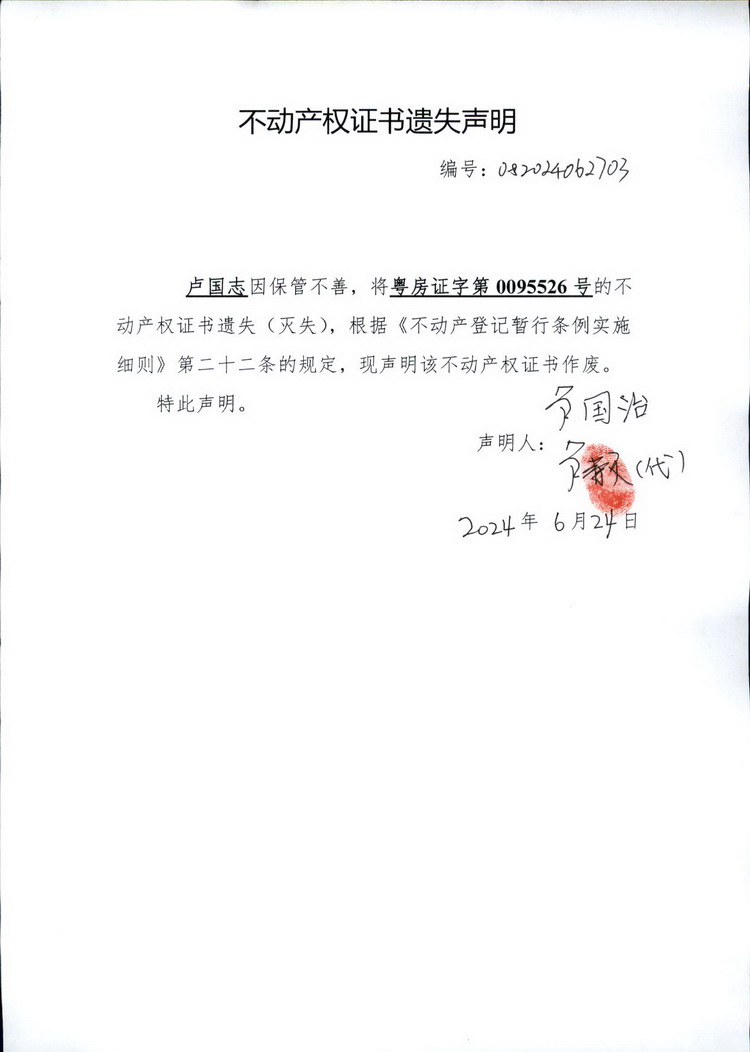 不动产权证书遗失声明
编号：082024062703
卢国志因保管不善，将粤房证字第 0095526 号的不
动产权证书遗失（灭失），根据《不动产登记暂行条例实施
细则》第二十二条的规定，现声明该不动产权证书作废。
特此声明。
国治
声明人：
（代）
2024年 6月24日